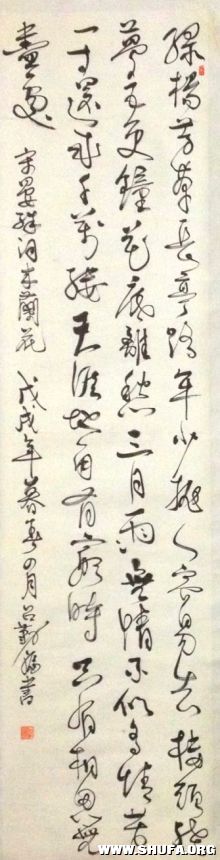 綠楊芳草長亭路年少拋人容易去樓頭殘
夢五更鐘花底離愁三月雨無情不似多情苦
一寸還成千萬縷天涯地角有窮時只有相思無
盡處 宋晏殊詞木蘭花 戊戌年暮春四月呂勤書
WWW.SHUFA.ORG